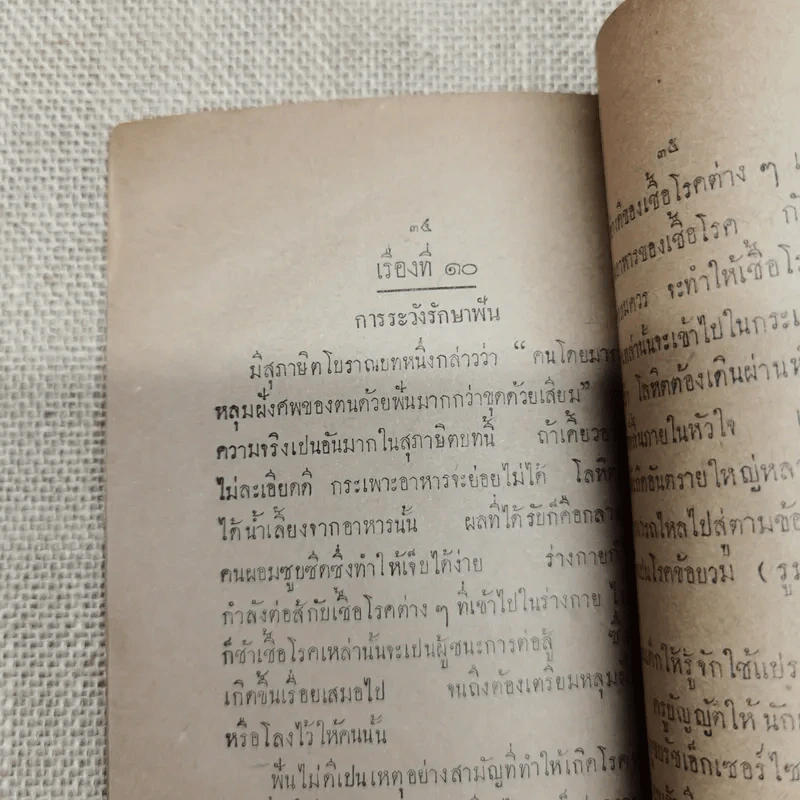 ๓๔
เรื่องที่ ๑๐
การระวังรักษาฟัน
มีสุภาษิตโบราณบทหนึ่งกล่าวว่า “ คนโดยมาก
หลุมฝังศพของตนด้วยฟันมากกว่าขุดด้วยเสียม”
ความจริงเปนอันมากในสุภาษิตบทนี้ ถ้าเคี้ยว
ไม่ละเอียดดี กระเพาะอาหารจะย่อยไม่ได้ โลหิต
ได้น้ำเลี้ยงจากอาหารนั้น ผลที่ได้รับก็คือกลาย
คนผอมซูบซีดซึ่งทำให้เจ็บได้ง่าย ร่างกาย
กำลังต่อสู้กับเชื้อโรคต่าง ๆ ที่เข้าไปในร่างกาย
ก็ช้าเชื้อโรคเหล่านั้นจะเปนผู้ชนะการต่อสู้
เกิดขึ้นเรื่อยเสมอไป จนถึงต้องเตรียมหลุม
หรือโลงไว้ให้คนนั้น
ฟันไม่ดีเปนเหตุอย่างสามัญที่ทำให้เกิดโรค
๓๕
ของเชื้อโรคต่าง ๆ
อาหารของเชื้อโรค
จะทำให้เชื้อโร
เหล่านั้นจะเข้าไปในกระเ
โลหิตต้องเดินผ่าน
ขึ้นภายในหัวใจ
เกิดอันตรายใหญ่หล
ไหลไปสู่ตามข้อ
เปนโรคข้อบวม ( รู
ให้รู้จักใช้แปร
ครูบัญญัติให้นัก
เอ็กเซอร์ไซ